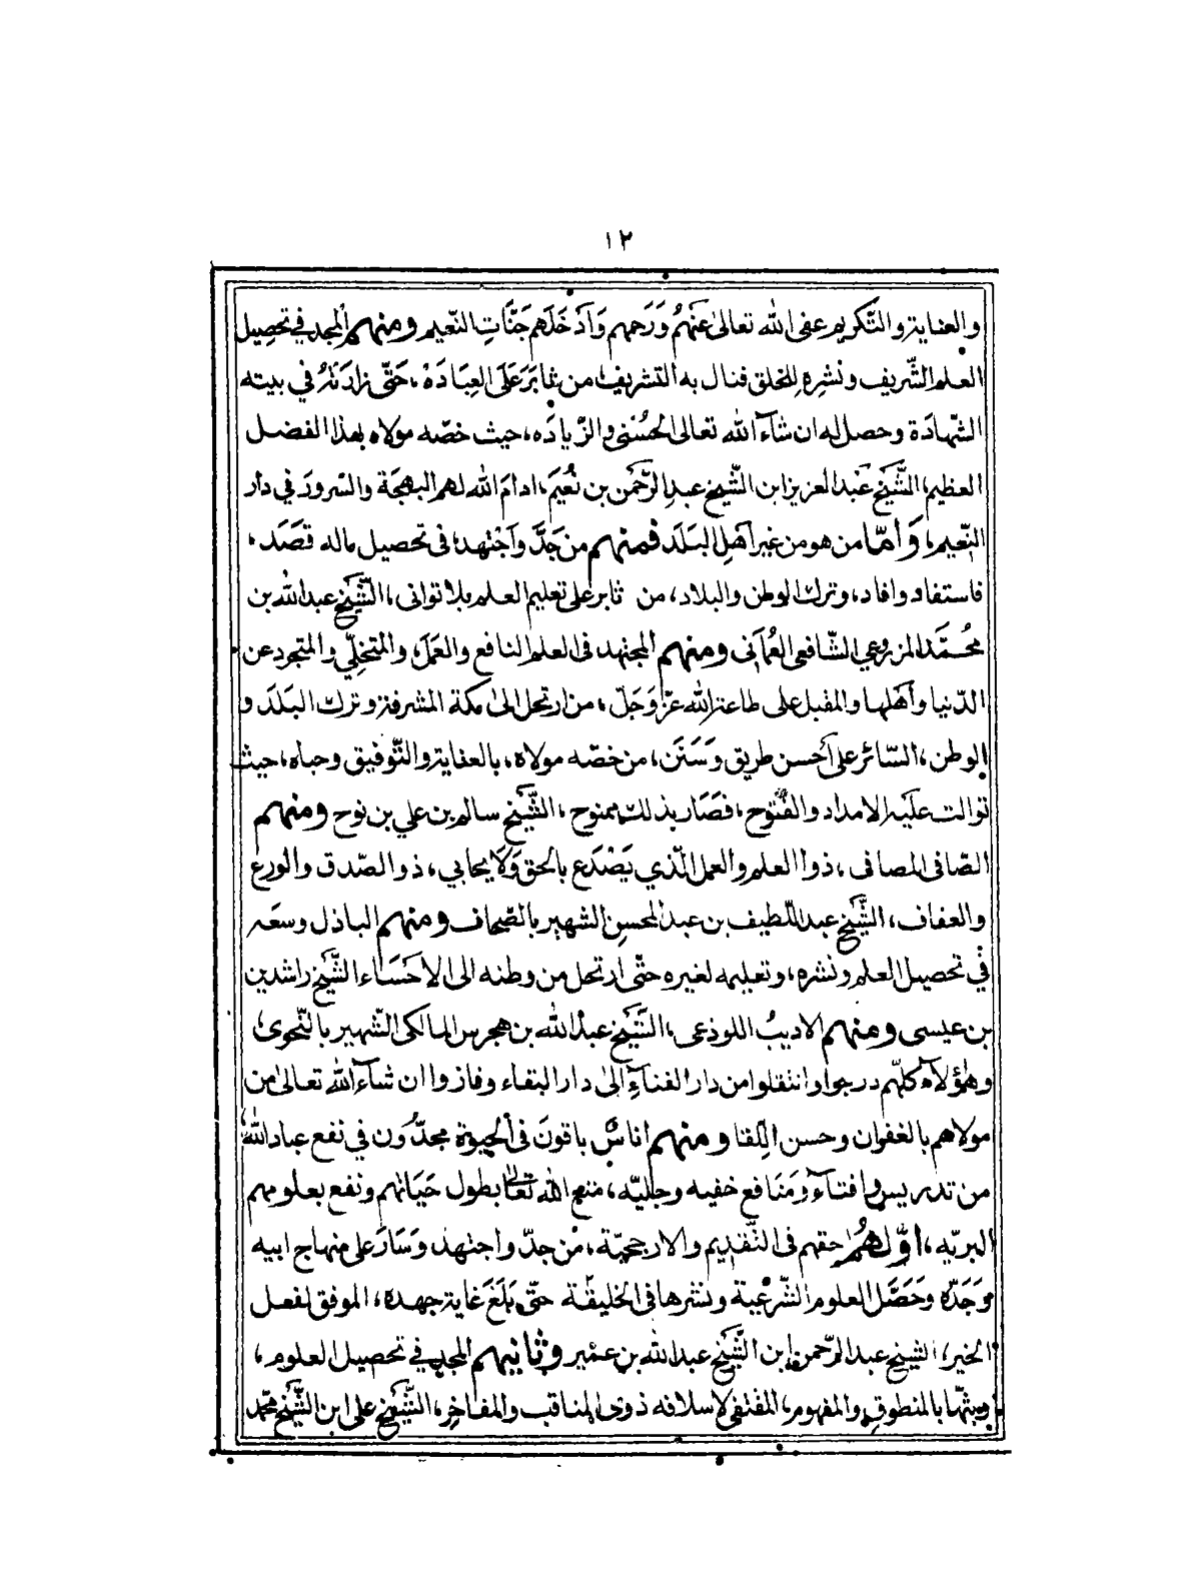 ١٢
والعناية والتَّكريم عفى الله تعالى عَنْهُمُ وَرَحمهم وَأَدْخَلَهم جَنَّاتِ النَّعيم ومنهم المجد في تحصِيل
العلم الشَّريف ونشرِهِ للخلق فنال به التشريف، من ثابَرَ عَلَى العِبَادَهْ، حَتَّى زادَتْهُ في بيته
الشّهادَة وحصل له ان شآء الله تعالى الحُسْنى والزِّيادَه، حيث خصّه مولاه بهذا الفضل
العظيم، الشَّيْخ عَبْد العزيز ابن الشّيخ عبدِ الرَّحْمٰن بن نُعَيم، ادامَ الله لهم البهجَة والسّرورَ في دار
النّعيم، وَأمّا من هو من غير أهْلِ البَلَد فمنهم من جَدَّ وَاجْتهد، فى تحصيل ماله قصَدَ،
فاستفاد وافاد، وترك الوطن والبلاد، من ثابر على تعليم العلم بلا توانى، الشّيْخ عبد الله بن
محُمَّد المزروعي الشّافعى العُمَانى ومنهم المجتهد فى العلم النافع والعَمَل، والمتخلّي والمتجرد عن
الدّنيا وأهلها والمقبل على طاعة الله عزّ وَجَلّ، من ارتحل الى مكة المشرفة وترك البَلَد و
الوطن، السّائر على أحسن طريق وَسَنَن، من خصّه مولاه، بالعناية والتَّوفيق وحباه، حيث
توالت عليه الامداد والفتوح، فصَار بذلك ممنوح، الشَّيخ سالم بن علي بن نوح ومنهم
الصّافى المصافى، ذوا العلم والعمل الّذي يَصْدَع بالحق وَلَا يحابي، ذو الصّدق والورع
والعفاف، الشَّيْخ عبد اللّطيف بن عبد المحسن الشهير بالصّحاف ومنهم الباذل وسعَه
في تحصيل العلم ونشره، وتعليمه لغيره حتّى ارتحل من وطنه الى الاحَسَاء الشَّيخ راشد بن
بن عيسى ومنهم الاديبُ اللوذعى، الشَّيْخ عبد الله بن هجرس المالكى الشّهير بالنّحوى
وهٰؤلآء كلّهم درجوا وانتقلوا من دار الفنآءِ الى دار البقاء وفازوا ان شآء الله تعالى من
مولاهم بالغفران وحسن اللِّقا ومنهم اناسٌ باقونَ فى الحيوة مجدّون في نفع عباد الله
من تدريس وافتآء وَمَنَافع خفيه وجليّه، متع الله تعالى بطول حَيَاتهم ونفع بعلومهم
البريّه، اوَّلهُم احقهم فى التَّقديم والارجحيّة، مَن جدّ واجتهد، وَسَارَ على منهاج ابيه
وَجَدّه وَحَصَّل العلوم الشّرعيّة ونشرها فى الخليقَة حتّى بَلَغَ غاية جهده، الموفق لفعل
الخير، الشيخ عبد الرّحمن ابن الشَّيْخ عبد الله بن عمير وثانيهم المجد في تحصيل العلوم،
وبثّها بالمنطوق والمفهوم، المقتفى لاسلافه ذوى المناقب والمفاخر، الشَّيْخ على ابن الشَّيْخ محمّد